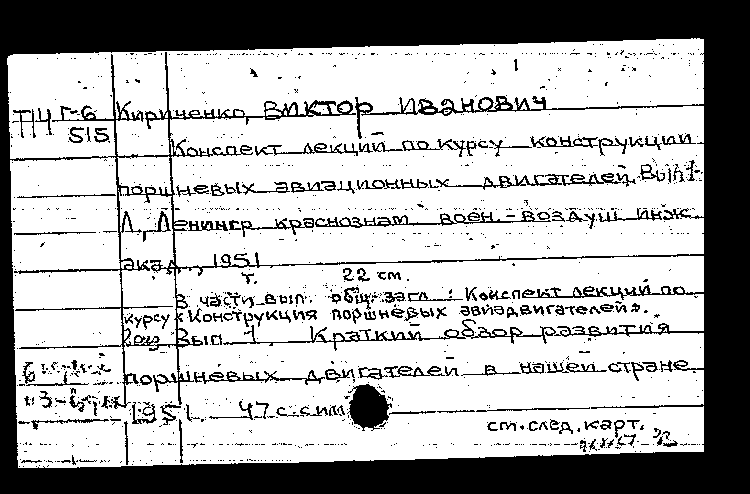 1
ТІЧ Г-6 Кириченко, Виктор Иванович
515
Конспект лекций по курсу конструкции
поршневых авиационных двигателей. Вып. 1-
Л., Ленингр. краснознам. воен.-воздуш. инж.
акад., 1951
т. 22 см.
В части вып. общ. загл.: Конспект лекций по
курсу «Конструкция поршневых авиадвигателей».
Вып. 1. Краткий обзор развития
поршневых двигателей в нашей стране.
1951. 47 с. с илл.
см. след. карт.